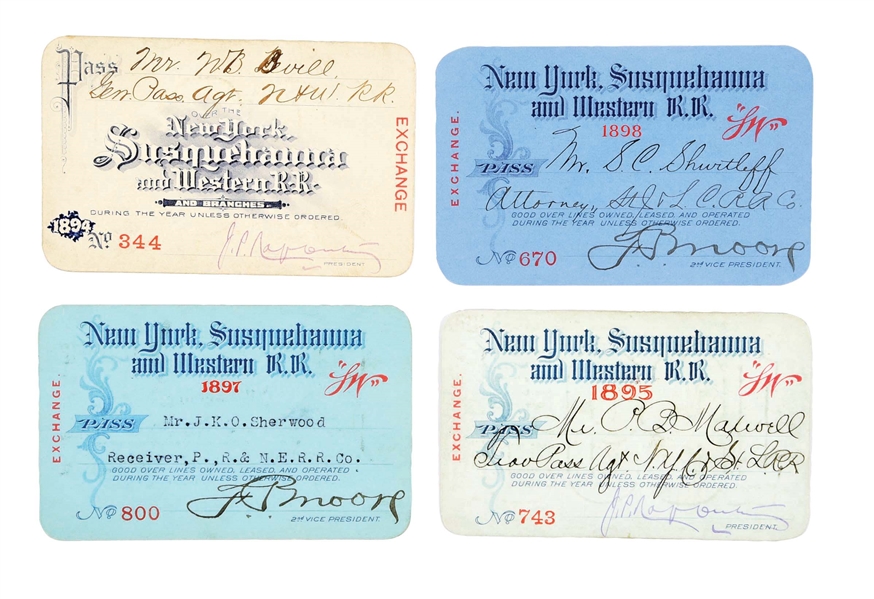 Pass Mr. W B. Bevill,
Gen. Pass. Agt. N & W. R.R.
OVER THE
New York,
Susquehanna
and Western R.R.
AND BRANCHES
DURING THE YEAR UNLESS OTHERWISE ORDERED.
1894
No 344
PRESIDENT.
EXCHANGE
New York, Susquehanna
and Western R.R.
1898
"SW"
PASS Mr. S C. Shurtleff
Attorney, St J & L. C. R R Co.
GOOD OVER LINES OWNED, LEASED, AND OPERATED
DURING THE YEAR UNLESS OTHERWISE ORDERED.
No 670
F P Moore
2nd VICE PRESIDENT.
EXCHANGE.
New York, Susquehanna
and Western R.R.
1897
"SW"
PASS Mr.J.K.O.Sherwood
Receiver,P.,R.& N.E.R.R.Co.
GOOD OVER LINES OWNED, LEASED, AND OPERATED
DURING THE YEAR UNLESS OTHERWISE ORDERED.
No 800
F P Moore
2nd VICE PRESIDENT.
EXCHANGE.
New York, Susquehanna
and Western R.R.
1895
"SW"
PASS Mr. Maxwell
Trav Pass Agt N.Y. C & St. L. RR
GOOD OVER LINES OWNED, LEASED, AND OPERATED
DURING THE YEAR UNLESS OTHERWISE ORDERED.
No 743
PRESIDENT.
EXCHANGE.